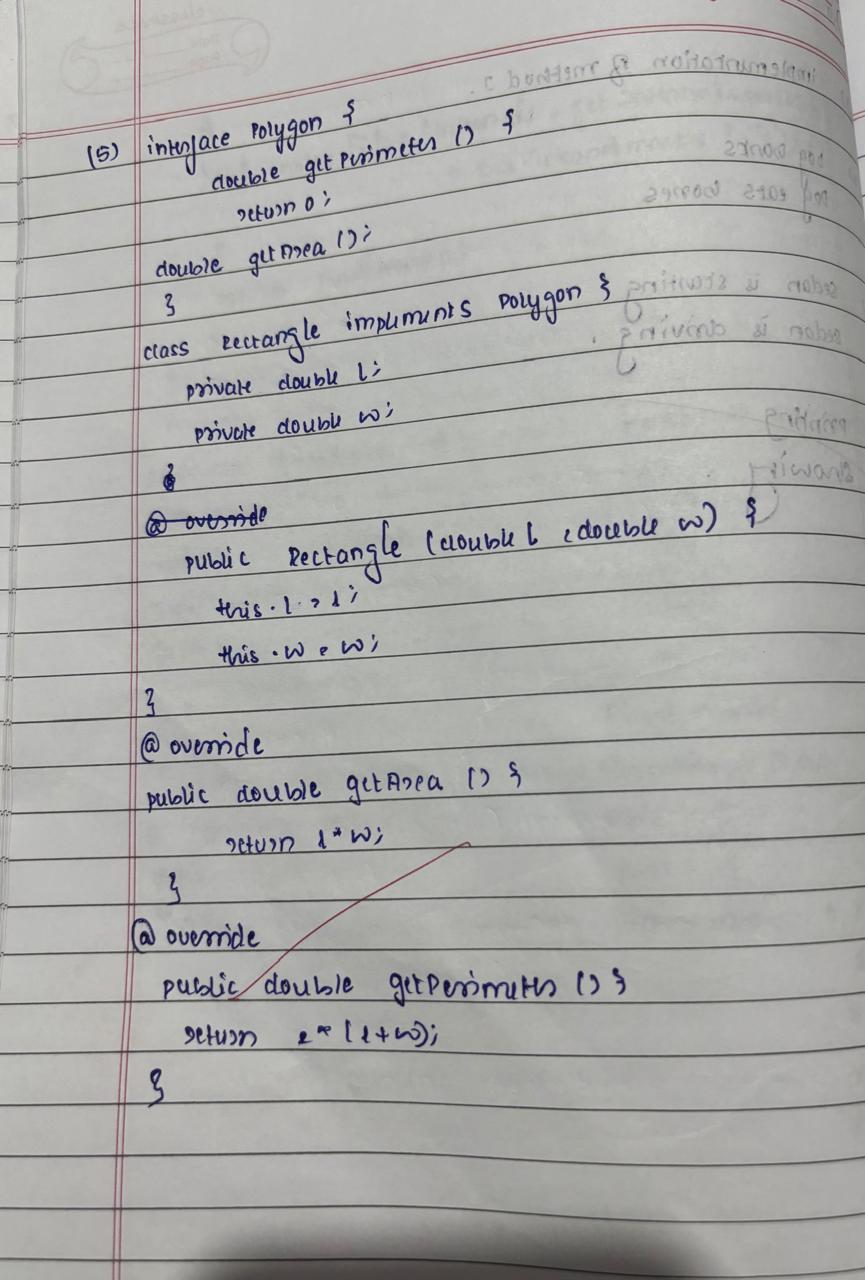 (5) interface Polygon {
double getPerimeter () {
return 0;
double getArea ();
}
class Rectangle implements Polygon {
private double l;
private double w;
@ override
public Rectangle (double l , double w) {
this.l = l;
this.w = w;
}
@ override
public double getArea () {
return l * w;
}
@ override
public double getPerimeter () {
return 2 * (l+w);
}